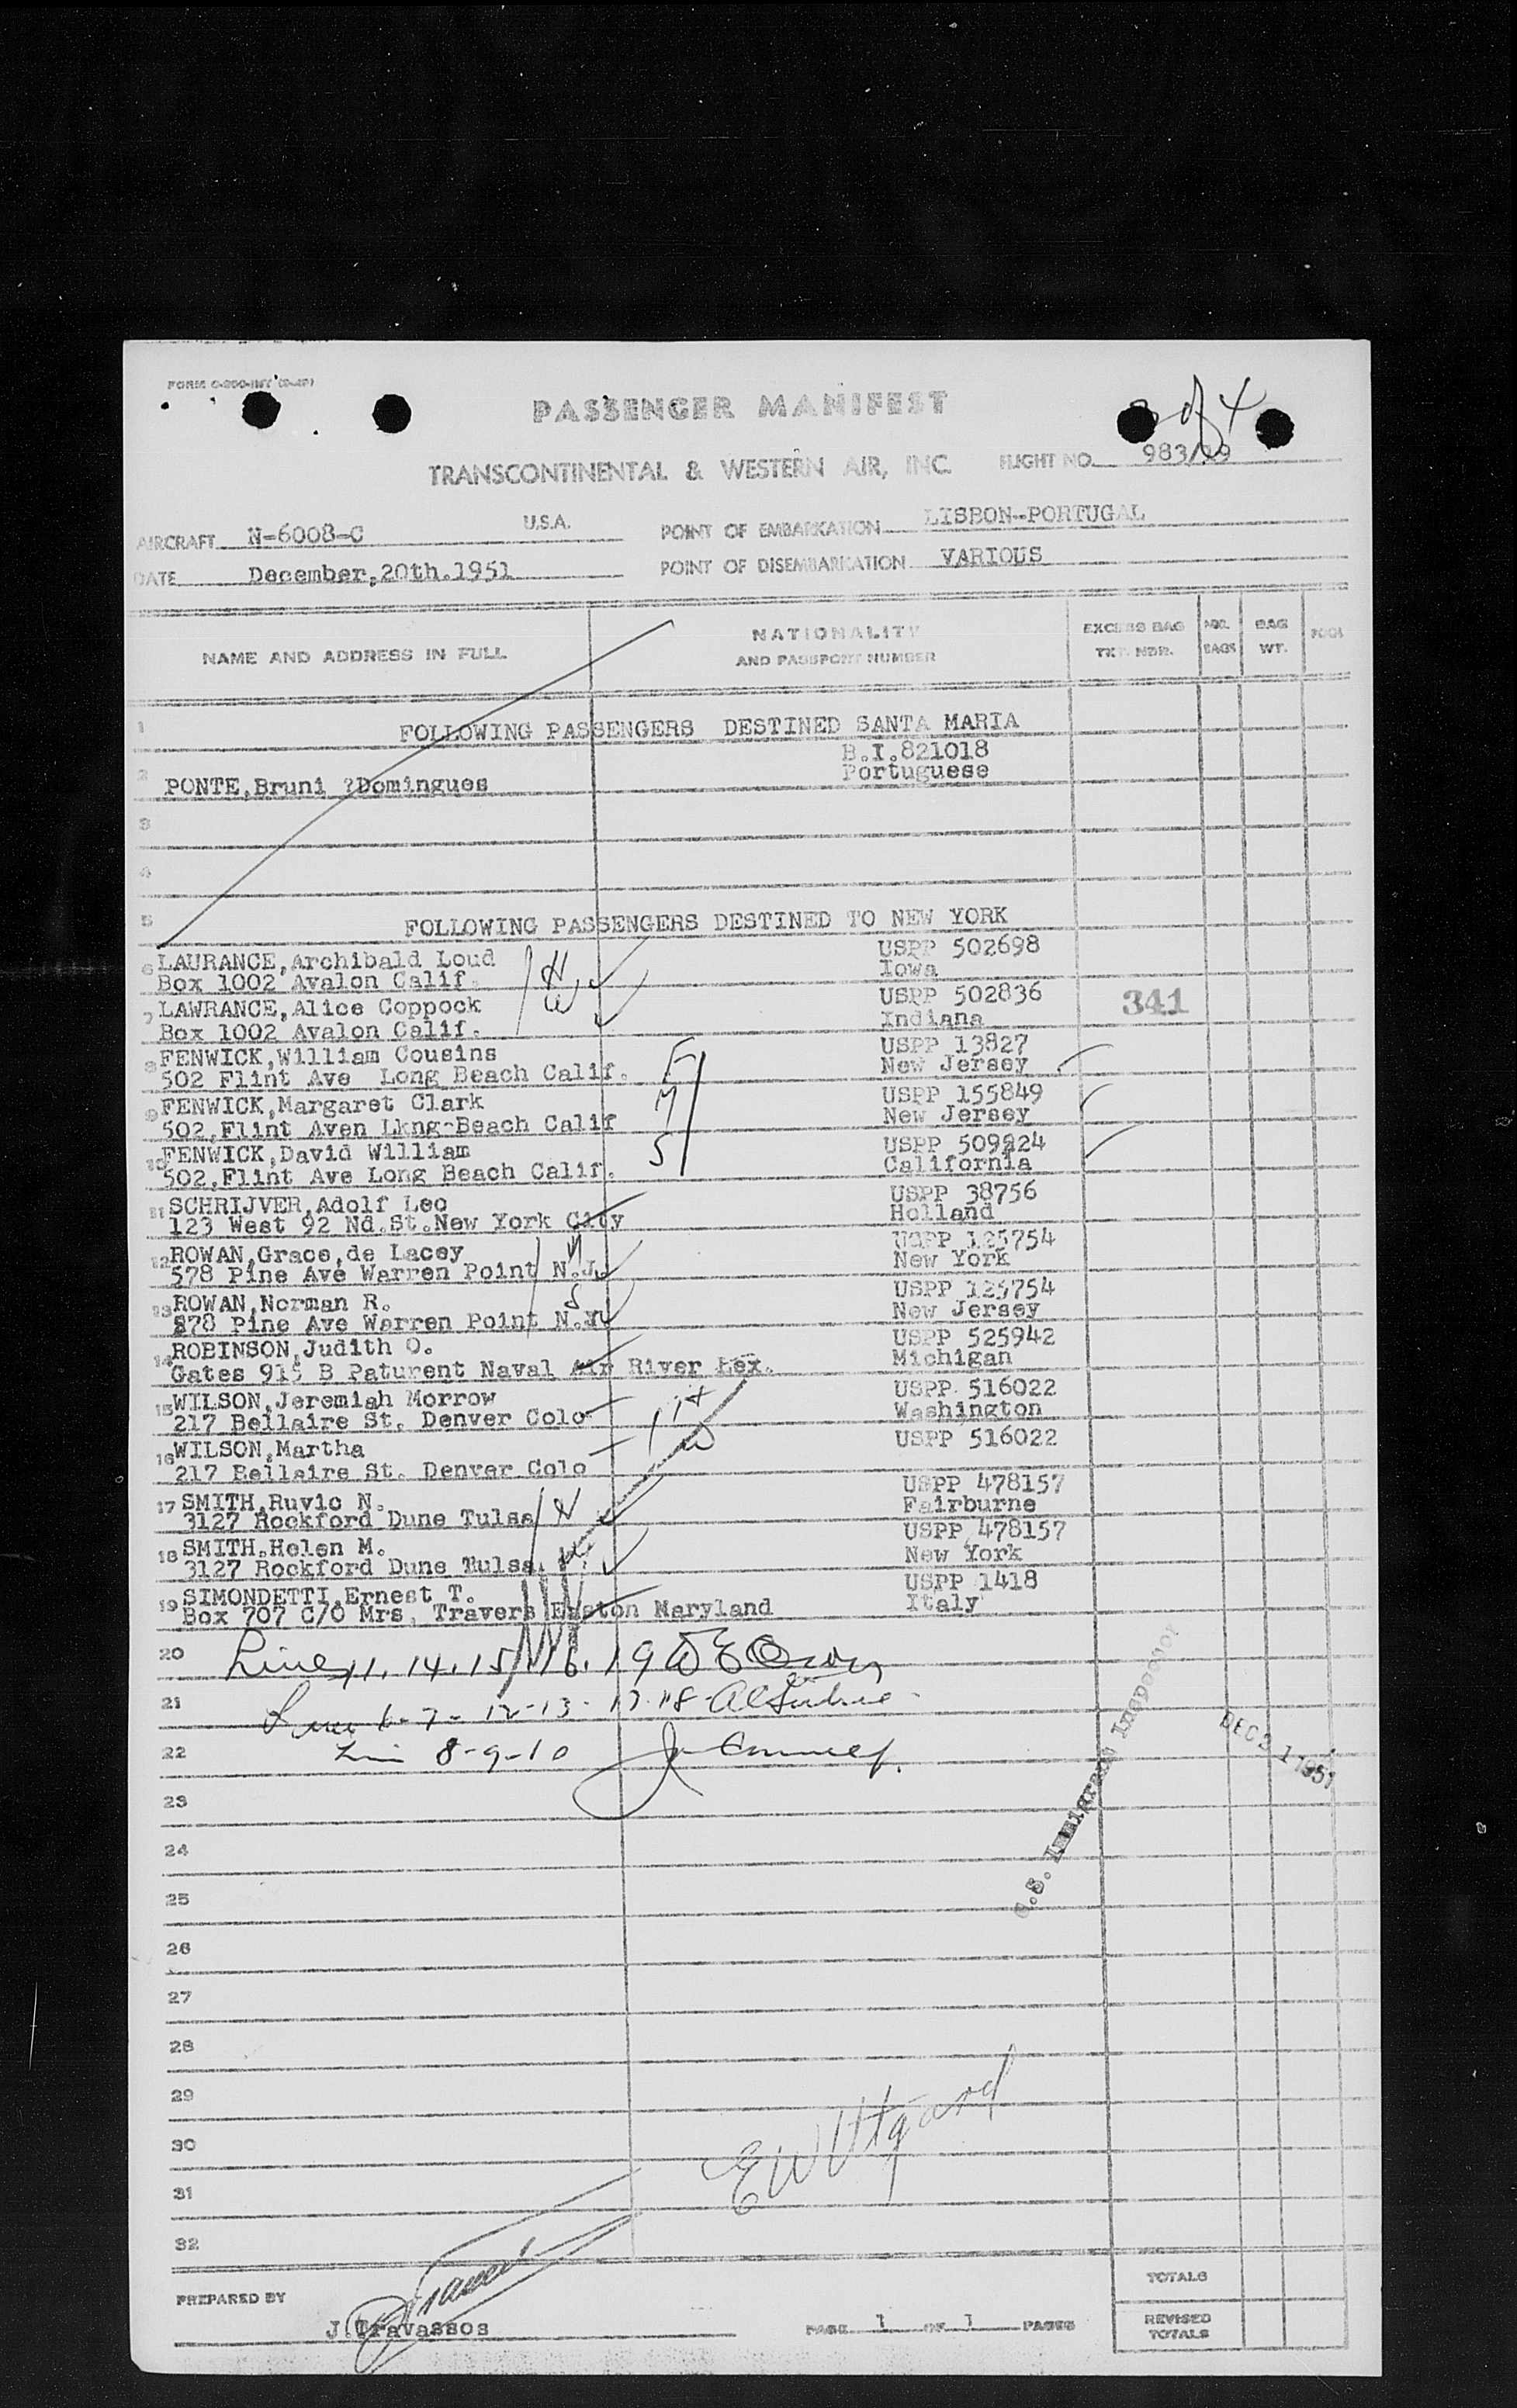 FORM
of 4
PASSENGER MANIFEST
TRANSCONTINENTAL & WESTERN AIR, INC. FLIGHT NO. 983/
AIRCRAFT N-6008-C U.S.A. POINT OF EMBARKATION LISBON--PORTUGAL
DATE December,20th.1951 POINT OF DISEMBARKATION VARIOUS
NAME AND ADDRESS IN FULL
NATIONALITY
AND PASSPORT NUMBER
EXCESS BAG
TKT. NBR.
BAGS
BAG
WT.
1 FOLLOWING PASSENGERS DESTINED SANTA MARIA
B.I.821018
2 PONTE,Bruni ?Domingues Portuguese
3
4
5 FOLLOWING PASSENGERS DESTINED TO NEW YORK
6 LAURANCE,Archibald Loud H USPP 502698
Box 1002 Avalon Calif. Iowa
7 LAWRANCE,Alice Coppock W USPP 502836 341
Box 1002 Avalon Calif. Indiana
8 FENWICK,William Cousins F USPP 13827
502 Flint Ave Long Beach Calif. New Jersey
9 FENWICK,Margaret Clark M USPP 155849
502,Flint Aven Lkng-Beach Calif New Jersey
10 FENWICK,David William S USPP 509824
502,Flint Ave Long Beach Calif. California
11 SCHRIJVER,Adolf Leo USPP 38756
123 West 92 Nd.St.New York City Holland
12 ROWAN,Grace,de Lacey M USPP 125754
578 Pine Ave Warren Point N.J. New York
13 ROWAN,Norman R. S USPP 125754
578 Pine Ave Warren Point N.J. New Jersey
14 ROBINSON,Judith O. USPP 525942
Gates 915 B Paturent Naval Air River Lex. Michigan
15 WILSON,Jeremiah Morrow H USPP 516022
217 Bellaire St. Denver Colo Washington
16 WILSON,Martha W USPP 516022
217 Bellaire St. Denver Colo
17 SMITH,Ruvic N. H USPP 478157
3127 Rockford Dune Tulsa Fairburne
18 SMITH,Helen M. W USPP 478157
3127 Rockford Dune Tulsa New York
19 SIMONDETTI,Ernest T. USPP 1418
Box 707 C/O Mrs, Travers Easton Maryland Italy
20 Lines 11. 14. 15. 16. 19
21 Lines 6-7-12-13-17-18
22 Line 8-9-10
23
24
25
26
27
28
29
30
31
32
U.S. Immigrant Inspector
DEC 21 1951
E W Utgard
TOTALS
PREPARED BY J.Travassos
PAGE 1 OF 1 PAGES
REVISED
TOTALS